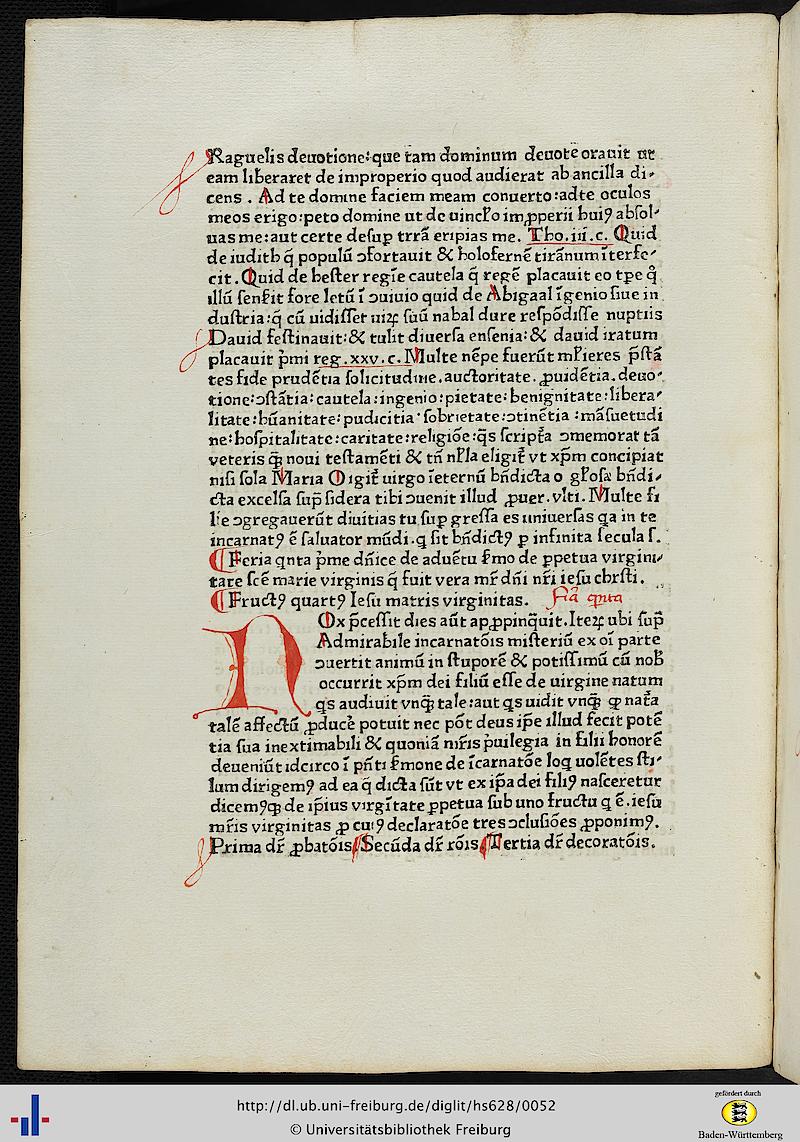 Raguelis deuotione:que tam dominum deuote orauit ut
eam liberaret de improperio quod audierat ab ancilla di⸗
cens . Ad te domine faciem meam conuerto:adte oculos
meos erigo:peto domine ut de uincl̕o imꝓperii huiꝰ absol⸗
uas me:aut certe desuꝑ trrā eripias me. Tho.iii.c. Quid
de iudith q̄ populū ↄfortauit & holofernē tirānum īterfe⸗
cit. Quid de hester regīe cautela q̄ regē placauit eo tꝑe q̊
illū sensit fore letū ī ↄuiuio quid de Abigaal īgenio siue in
dustria:q̄ cū uidisset uiꝝ suū nabal dure respōdisse nuptiis
Dauid festinauit:& tulit diuersa ensenia:& dauid iratum
placauit p̄mi reg.xxv.c. Multe nēpe fuerūt ml̕ieres p̄stā
tes fide prudētia solicitudine.auctoritate.ꝓuidētia.deuo⸗
tione:ↄstātia:cautela:ingenio:pietate:benignitate:libera⸗
litate:hūanitate:pudicitia:sobrietate:ↄtinētia:māsuetudi
ne:hospitalitate:caritate:religiōe:q̄s scriptͣa ↄmemorat tā
veteris q̄ꝫ noui testamēti & tn̄ nl̕la eligit̄ vt xp̄m concipiat
nisi sola Maria Oigit̄ uirgo īeternū bn̄dicta o gl̕osa bn̄di⸗
cta excelsa sup̄ sidera tibi ↄuenit illud ꝓuer.vlti. Multe fi
lie ↄgregauerūt diuitias tu suꝑ gressa es uniuersas q̱a in te
incarnatꝰ ē saluator mūdi.q̱ sit bn̄dictꝰ ꝑ infinita secula s̄.
¶ Feria qnta p̄me dn̄ice de aduētu s̄mo de ꝑpetua virgini⸗
tate scē marie virginis q̄ fuit vera mr̄ dn̄i nr̄i iesu chrsti.
¶ Fructꝰ quartꝰ Iesu matris virginitas. Fīa qnta
NOx p̄cessit dies aūt apꝓpinq̄uit.Iteꝝ ubi sup̄
Admirabile incarnatōis misteriū ex oī parte
ↄuertit animū in stuporē & potissimū cū nob̄
occurrit xp̄m dei filiū esse de uirgine natum
q̱s audiuit vnq̄ꝫ tale:aut q̱s uidit vnq̄ꝫ ꝙ natͣa
talē affectū ꝓducē potuit nec pōt deus ip̄e illud fecit potē
tia sua inextimabili & quoniā mr̄is p̄uilegia in filii honorē
deueniūt idcirco ī pn̄ti s̄mone de īcarnatōe loq̱ uolētes sti⸗
lum dirigemꝰ ad ea q̄ dicta sūt vt ex ip̄a dei filiꝰ nasceretur
dicemꝰqꝫ de ip̄ius virgītate ꝑpetua sub uno fructu q̱ ē.iesu
mr̄is virginitas ꝓ cuiꝰ declaratōe tres ↄclusiōes ꝓponimꝰ.
Prima dr̄ ꝓbatōis ¶ Secūda dr̄ rōis ¶ Tertia dr̄ decoratōis.
gefördert durch
http://dl.ub.uni-freiburg.de/diglit/hs628/0052
© Universitätsbibliothek Freiburg
Baden-Württemberg